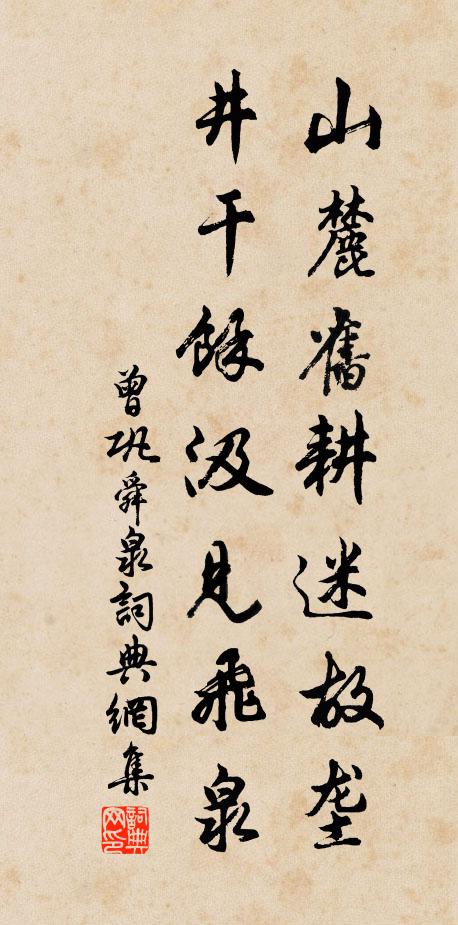 山麓舊耕迷故垄
井干餘汲見飛泉
曾巩舜泉詞典網集
詞典网印